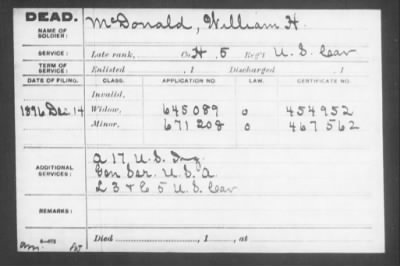 DEAD.
NAME OF SOLDIER: McDonald, William H.
SERVICE: Late rank, Co. H. 5 Reg't U. S. Cav
TERM OF SERVICE: Enlisted , 1 Discharged , 1
DATE OF FILING. CLASS. APPLICATION NO. LAW. CERTIFICATE NO.
Invalid,
1896 Dec. 14 Widow, 645089 o 454952
Minor, 671208 o 467562
ADDITIONAL SERVICES: A 17, U. S. Inf.
Gen Ser. U. S. A.
L 3 & C 5 U. S. Cav
REMARKS:
Died , 1 , at